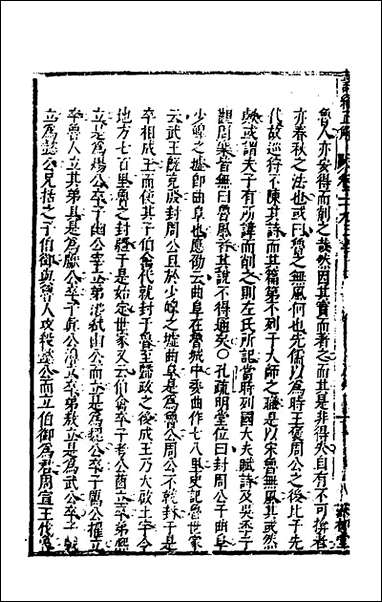 魯人亦安得而削之哉然因其實而著之而其是非得失自有不可揜者
亦春秋之法也或曰魯之無風何也先儒以為時王褒周公之後比于先
代故巡狩不陳其詩而其篇第不列于大師之職是以宋魯無風其或然
歟或謂夫子有所諱而削之則左氏所記當時列國大夫賦詩及吳季子
觀周樂皆無曰魯風者其說不得通矣○孔疏明堂位曰封周公于曲阜
少皥之墟即曲阜也應劭云曲阜在魯城中委曲作七八里史記魯世家
云武王既克殷封周公旦於少皥之墟曲阜是為魯公周公不就封于是
卒相成王而使其子伯禽代就封于魯至政之後成王乃大啟土宇令
地方七百里魯之封疆于是始定世家又云伯禽卒子考公酋立卒弟熙
立是為煬公卒子幽公宰立弟弒幽公而立是為公卒子厲公擢立
卒魯人立其弟具是為獻公卒子公濞立卒弟敖立是為武公卒子戲
立為懿公兄括之子伯御與魯人攻殺懿公而立伯御為君周宣王伐魯